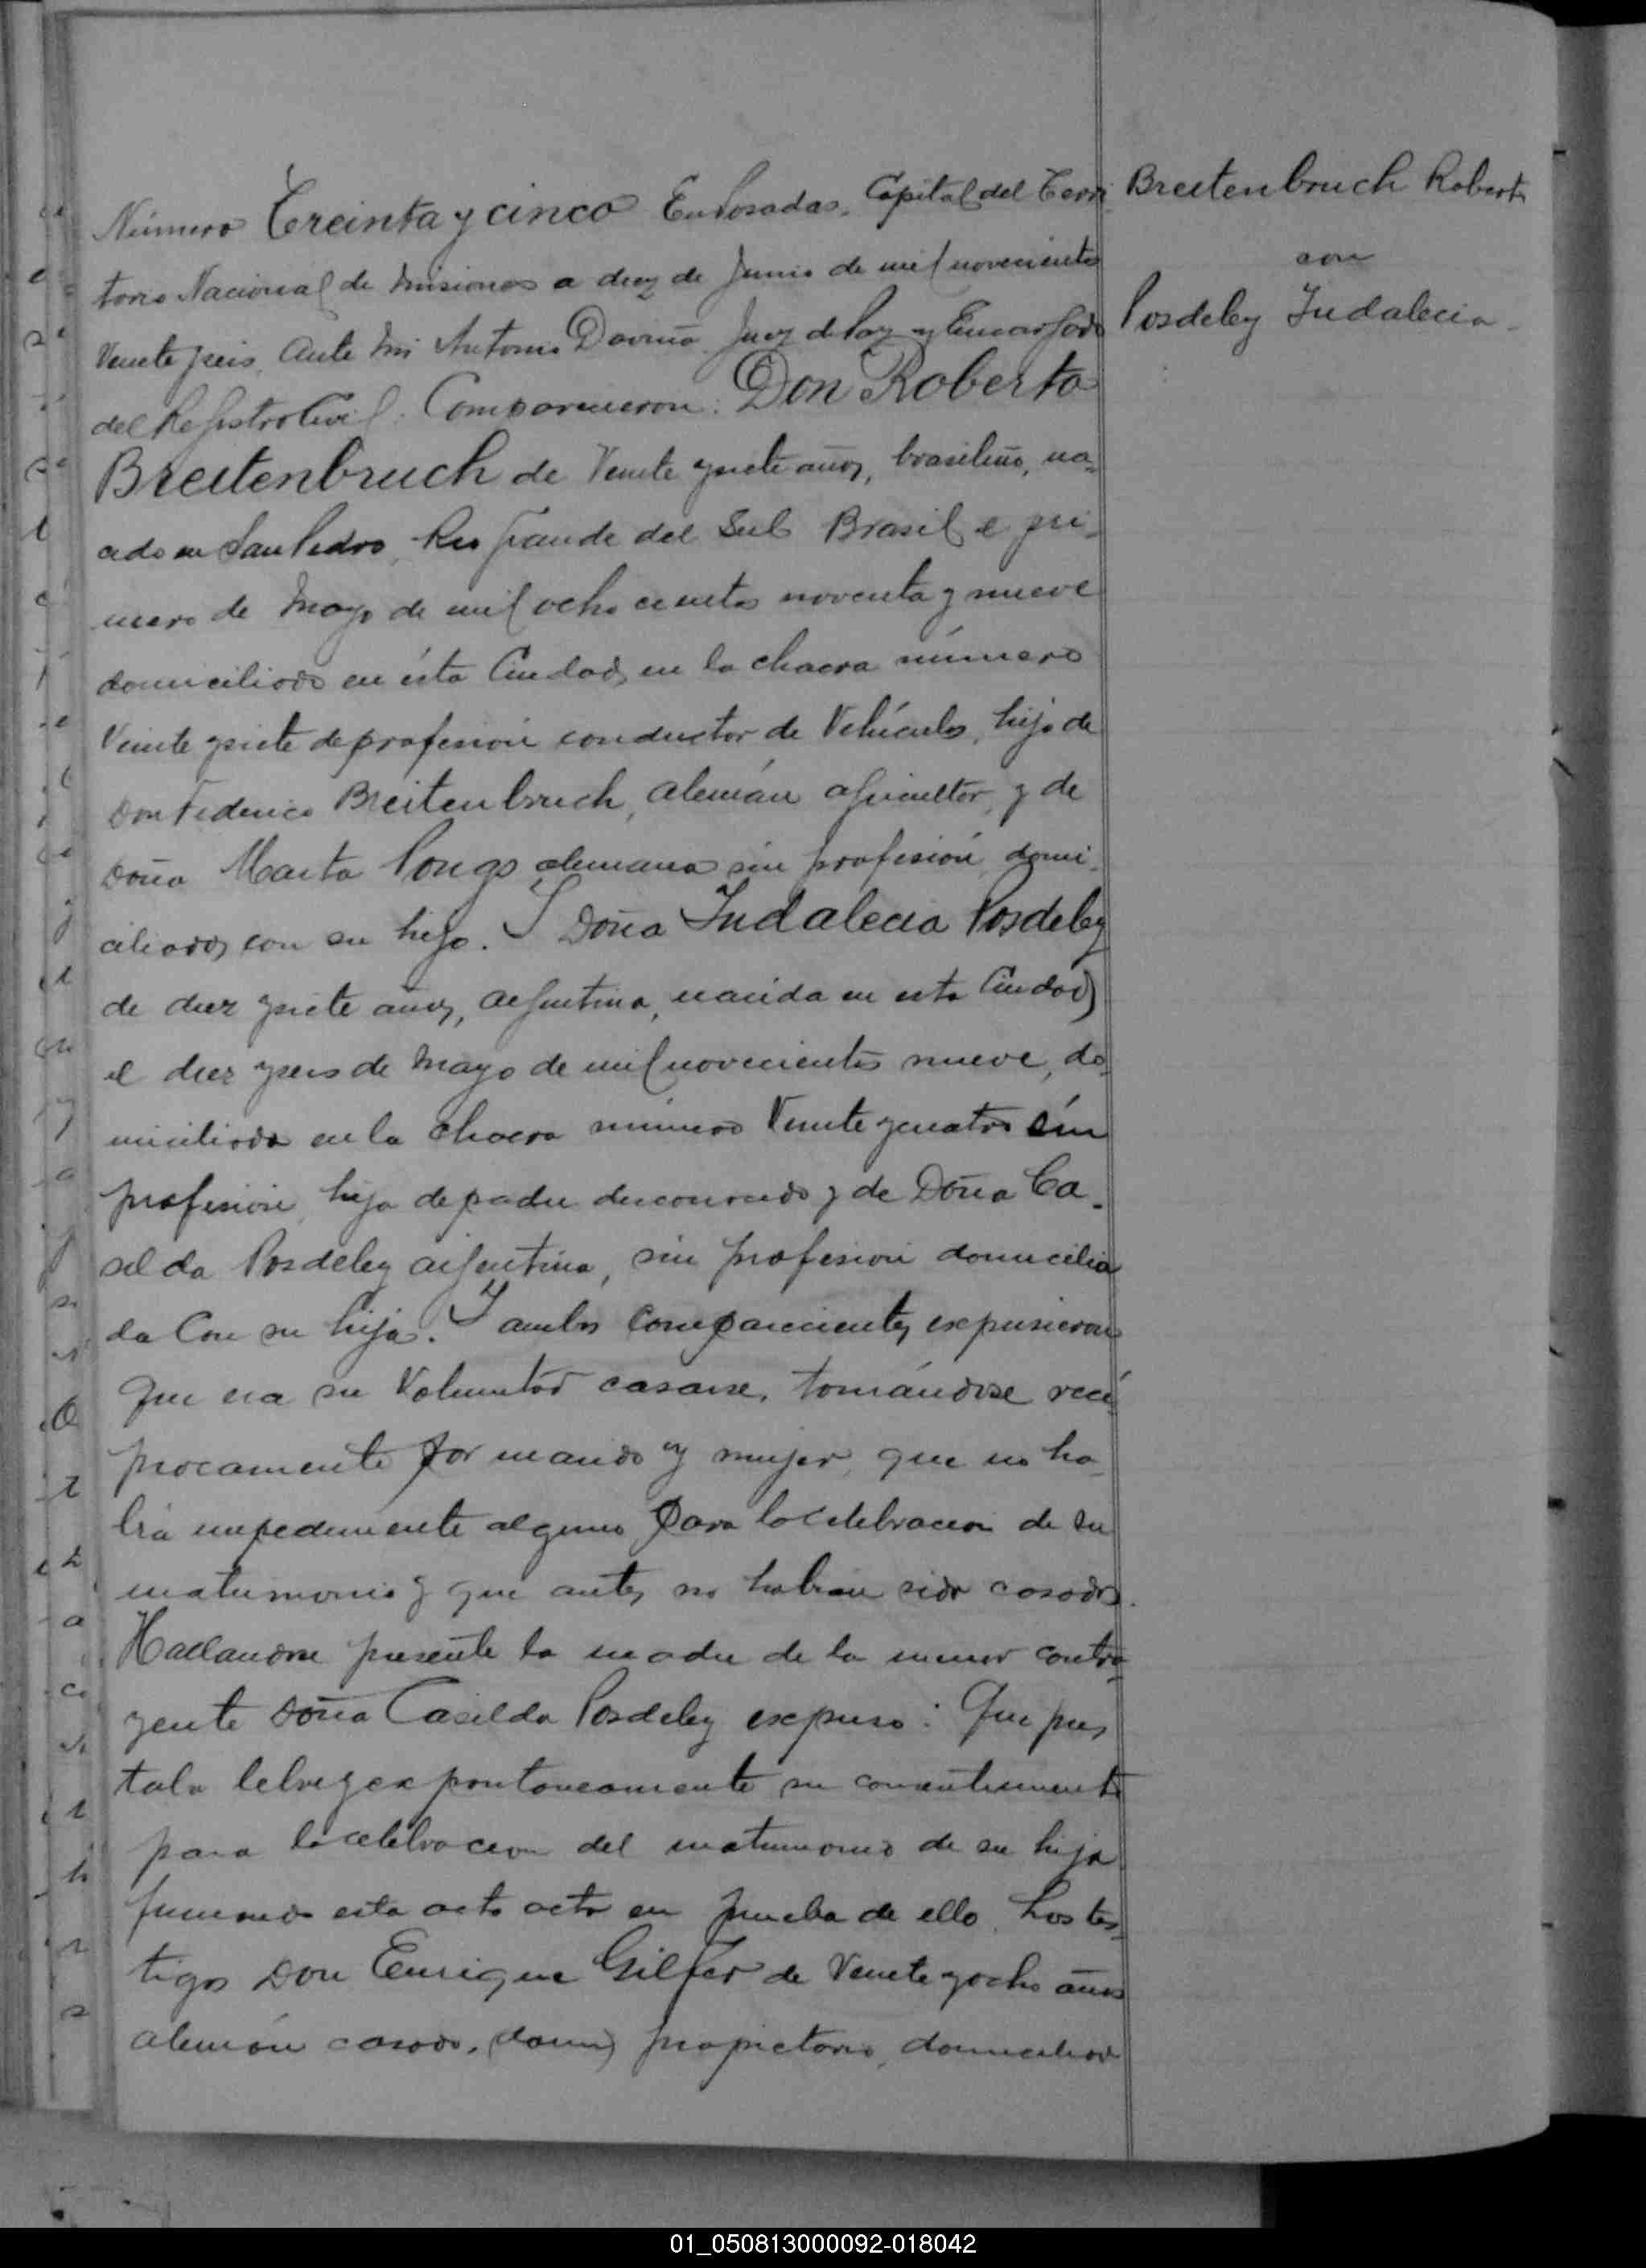 Número Treinta y cinco En Posadas, Capital del Terri
Breitenbruch Roberto
con
Posdeley Indalecia
torio Nacional de Misiones a diez de Junio de mil novecientos
Veinte y seis, Ante mi Antonio Daviña Juez de Paz y Encargado
del Registro Civil. Comparecieron: Don Roberto
Breitenbruch de Veinte y siete años, brasileño, na
cido en San Pedro, Rio grande del Sul Brasil el pri
mero de Mayo de mil ocho cientos noventa y nueve
domiciliado en ésta Ciudad, en la chacra número
Veinte y siete de profesión conductor de Vehículos, hijo de
Don Federico Breitenbruch, alemán agricultor, y de
Doña Marta Pongs alemana sin profesión, domi
ciliados con su hijo. Y Doña Indalecia Posdeley
de diez y siete años, argentina, nacida en esta Ciudad
el diez y seis de Mayo de mil novecientos nueve, do
miciliada en la chacra número Veinte y cuatro sin
profesión, hija de padre desconocido y de Doña Ca-
silda Posdeley argentina, sin profesión domicilia
da Con su hija. Y ambos comparecientes expusieron
Que era su Voluntad casarse, tomándose recí
procamente por marido y mujer, que no ha
bía impedimento alguno para la celebración de su
matrimonio y que antes no habían sido casados.
Hallandose presente la madre de la menor contra
yente Doña Casilda Posdeley expuso: Que pres
taba libre y expontaneamente su consentimiento
para la celebracion del matrimonio de su hija
firmando esta acto acto en prueba de ello. Los tes
tigos Don Enrique Gilfer de Veinte y ocho años
alemán casado, (domi) propietario, domiciliado